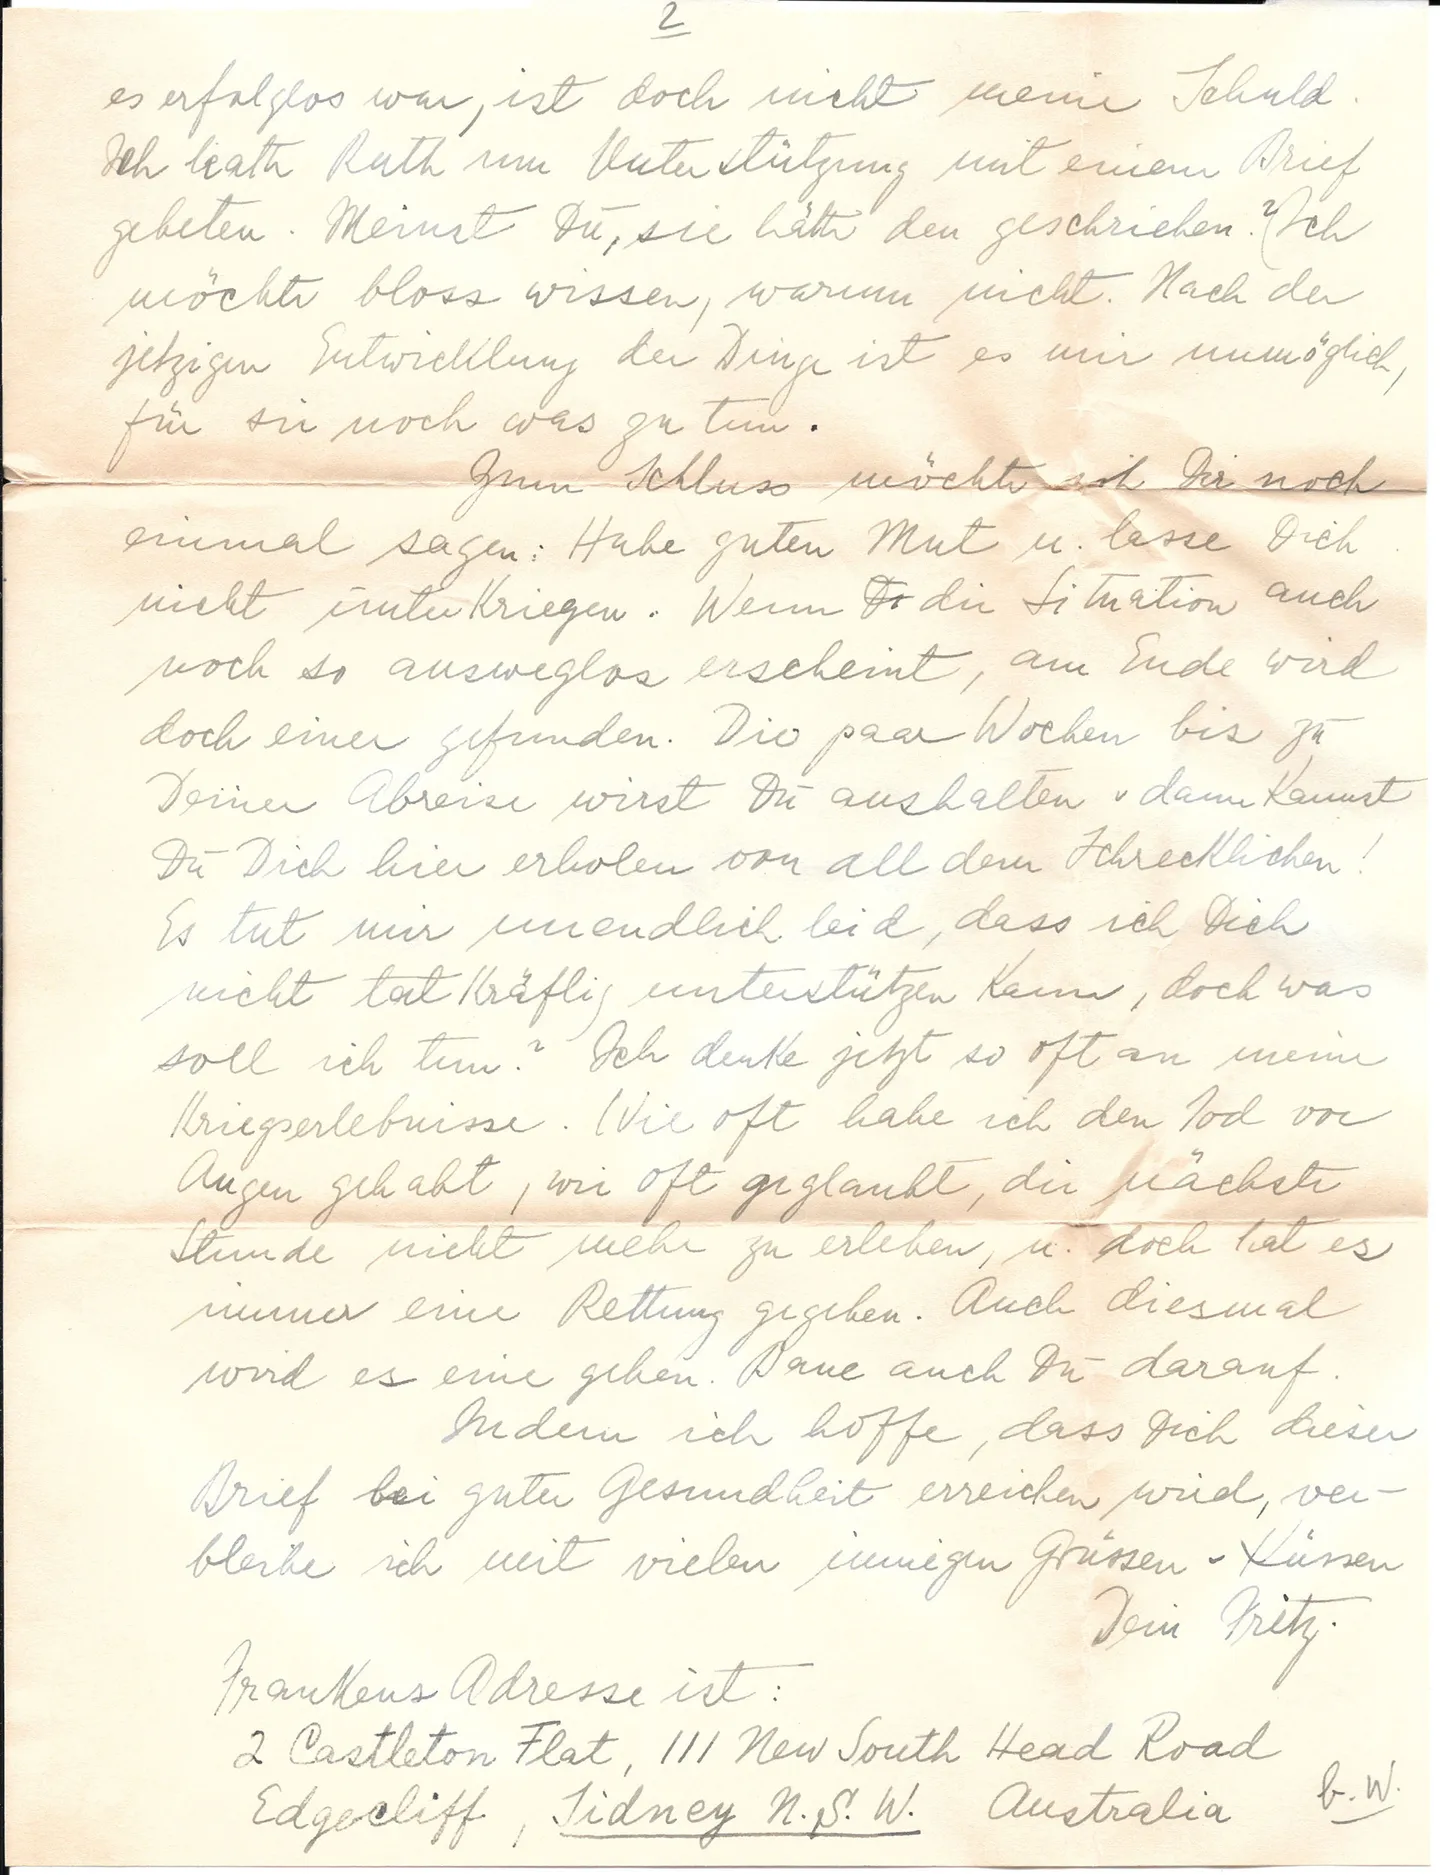 2
es erfolglos war, ist doch nicht meine Schuld.
Ich hatte Ruth um Unterstützung mit einem Brief
gebeten. Meinst Du, sie hätte den geschrieben? Ich
möchte bloss wissen, warum nicht. Nach der
jetzigen Entwicklung der Dinge ist es mir unmöglich,
für sie noch was zu tun.
Zum Schluss möchte ich Dir noch
einmal sagen: Habe guten Mut u. lasse Dich
nicht unterkriegen. Wenn die Situation auch
noch so ausweglos erscheint, am Ende wird
doch einer gefunden. Die paar Wochen bis zu
Deiner Abreise wirst Du aushalten u dann kannst
Du Dich hier erholen von all dem Schrecklichen!
Es tut mir unendlich leid, dass ich Dich
nicht tatkräftig unterstützen kann, doch was
soll ich tun? Ich denke jetzt so oft an meine
Kriegserlebnisse. Wie oft habe ich den Tod vor
Augen gehabt, wie oft geglaubt, die nächste
Stunde nicht mehr zu erleben, u. doch hat es
immer eine Rettung gegeben. Auch diesmal
wird es eine geben. Baue auch Du darauf.
Indem ich hoffe, dass Dich dieser
Brief bei guter Gesundheit erreichen wird, ver-
bleibe ich mit vielen innigen Grüssen u Küssen
Dein Fritz.
Frankens Adresse ist:
2 Castleton Flat, 111 New South Head Road
Edgecliff, Sidney N.S.W. Australia b.W.